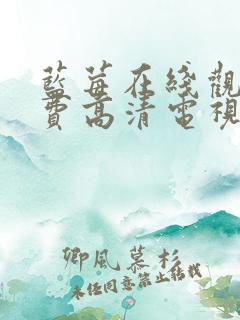 藍莓在綫觀
費高清電視
卿風慕杉
未经同意禁止转载